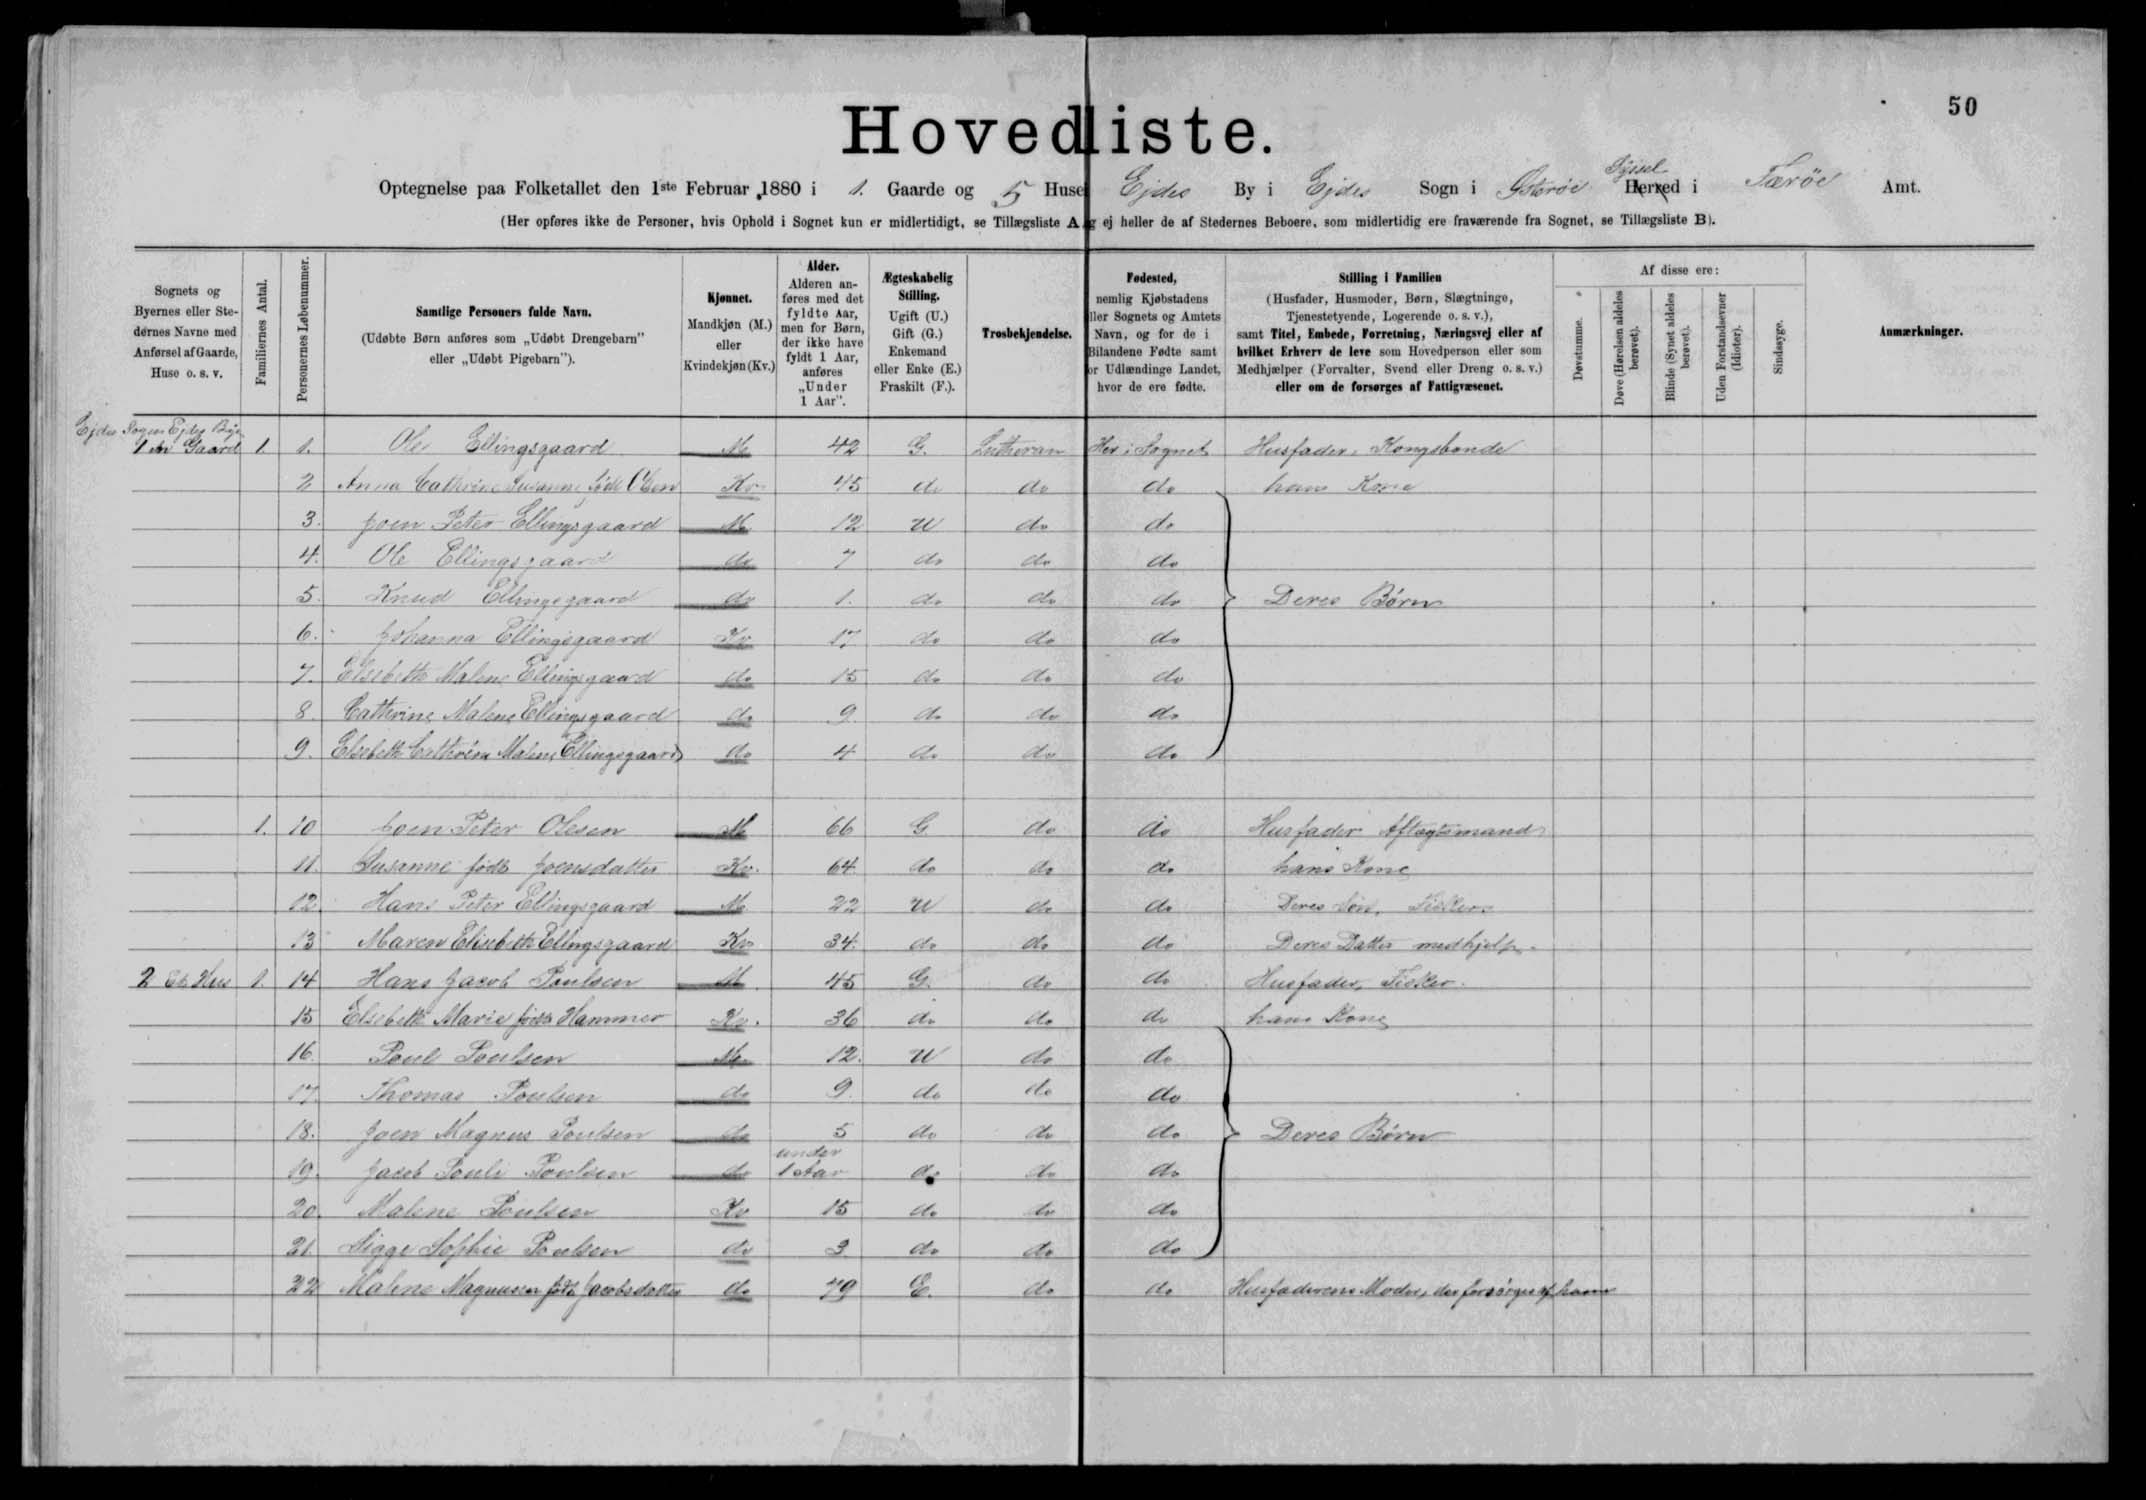 50
Hovedliste.
Optegnelse paa Folketallet den 1ste Februar 1880 i 1. Gaarde og 5 Huse Ejdes By i Ejdes Sogn i Østerøe Syssel Herred i Færøe Amt.
(Her opføres ikke de Personer, hvis Ophold i Sognet kun er midlertidigt, se Tillægsliste A, g ej heller de af Stedernes Beboere, som midlertidig ere fraværende fra Sognet, se Tillægsliste B).
Sognets og Byernes eller Stedernes Navne med Anførsel af Gaarde, Huse o. s. v. | Familiernes Antal. | Personernes Løbenummer. | Samtlige Personers fulde Navn. (Udøbte Børn anføres som „Udøbt Drengebarn" eller „Udøbt Pigebarn"). | Kjønnet. Mandkjøn (M.) eller Kvindekjøn (Kv.) | Alder. Alderen anføres med det fyldte Aar, men for Børn, der ikke have fyldt 1 Aar, anføres „Under 1 Aar". | Ægteskabelig Stilling. Ugift (U.) Gift (G.) Enkemand eller Enke (E.) Fraskilt (F.). | Trosbekjendelse. | Fødested, nemlig Kjøbstadens ller Sognets og Amtets Navn, og for de i Bilandene Fødte samt or Udlændinge Landet, hvor de ere fødte. | Stilling i Familien (Husfader, Husmoder, Børn, Slægtninge, Tjenestetyende, Logerende o. s. v.), samt Titel, Embede, Forretning, Næringsvej eller af hvilket Erhverv de leve som Hovedperson eller som Medhjælper (Forvalter, Svend eller Dreng o. s. v.) eller om de forsørges af Fattigvæsenet. | Af disse ere: Døvstumme. | Døve (Hørelsen aldeles berøvet). | Blinde (Synet aldeles berøvet). | Uden Forstandsevner (Idioter). | Sindssyge. | Anmærkninger.
Ejdes Sogn Ejdes By
1 En Gaard 1 1. Ole Ellingsgaard M 42 G. Lutheran Her i Sognet Husfader, Kongsbonde
2 Anna Cathrine Susanne født Olsen Kv. 45 do do do hans Kone
3. Joen Peter Ellingsgaard M 12 U do do
4. Ole Ellingsgaard do 7 do do do
5. Knud Ellingsgaard do 1. do do do Deres Børn
6. Johanna Ellingsgaard Kv 17. do do do
7. Elsebeth Malene Ellingsgaard do 15 do do do
8. Cathrine Malene Ellingsgaard do 9. do do do
9. Elsebeth Cathrine Malene Ellingsgaard do 4 do do do
1. 10 Joen Peter Olesen M 66 G. do do Husfader Aftægtsmand
11. Susanne født Joensdatter Kv. 64. do do do hans Kone
12 Hans Peter Ellingsgaard M 22 U do do Deres Søn, Fisker.
13 Maren Elisabeth Ellingsgaard Kv 34. do do do Deres Datter medhjelp.
2 Et Hus 1. 14 Hans Jacob Poulsen M. 45 G. do do Husfader, Fisker.
15 Elsebeth Marie født Hammer Kv. 36 do do do hans Kone
16. Poul Poulsen M. 12. U do do
17. Thomas Poulsen do 9. do do do
18. Joen Magnus Poulsen do 5 do do do Deres Børn
19. Jacob Pouli Poulsen do under 1 Aar do do do
20. Malene Poulsen Kv 15 do do do
21. Sigge Sophie Poulsen do 3 do do do
22 Malene Magnussen født Jacobsdatter do 79 E. do do Husfaderens Moder, der forsørges af ham